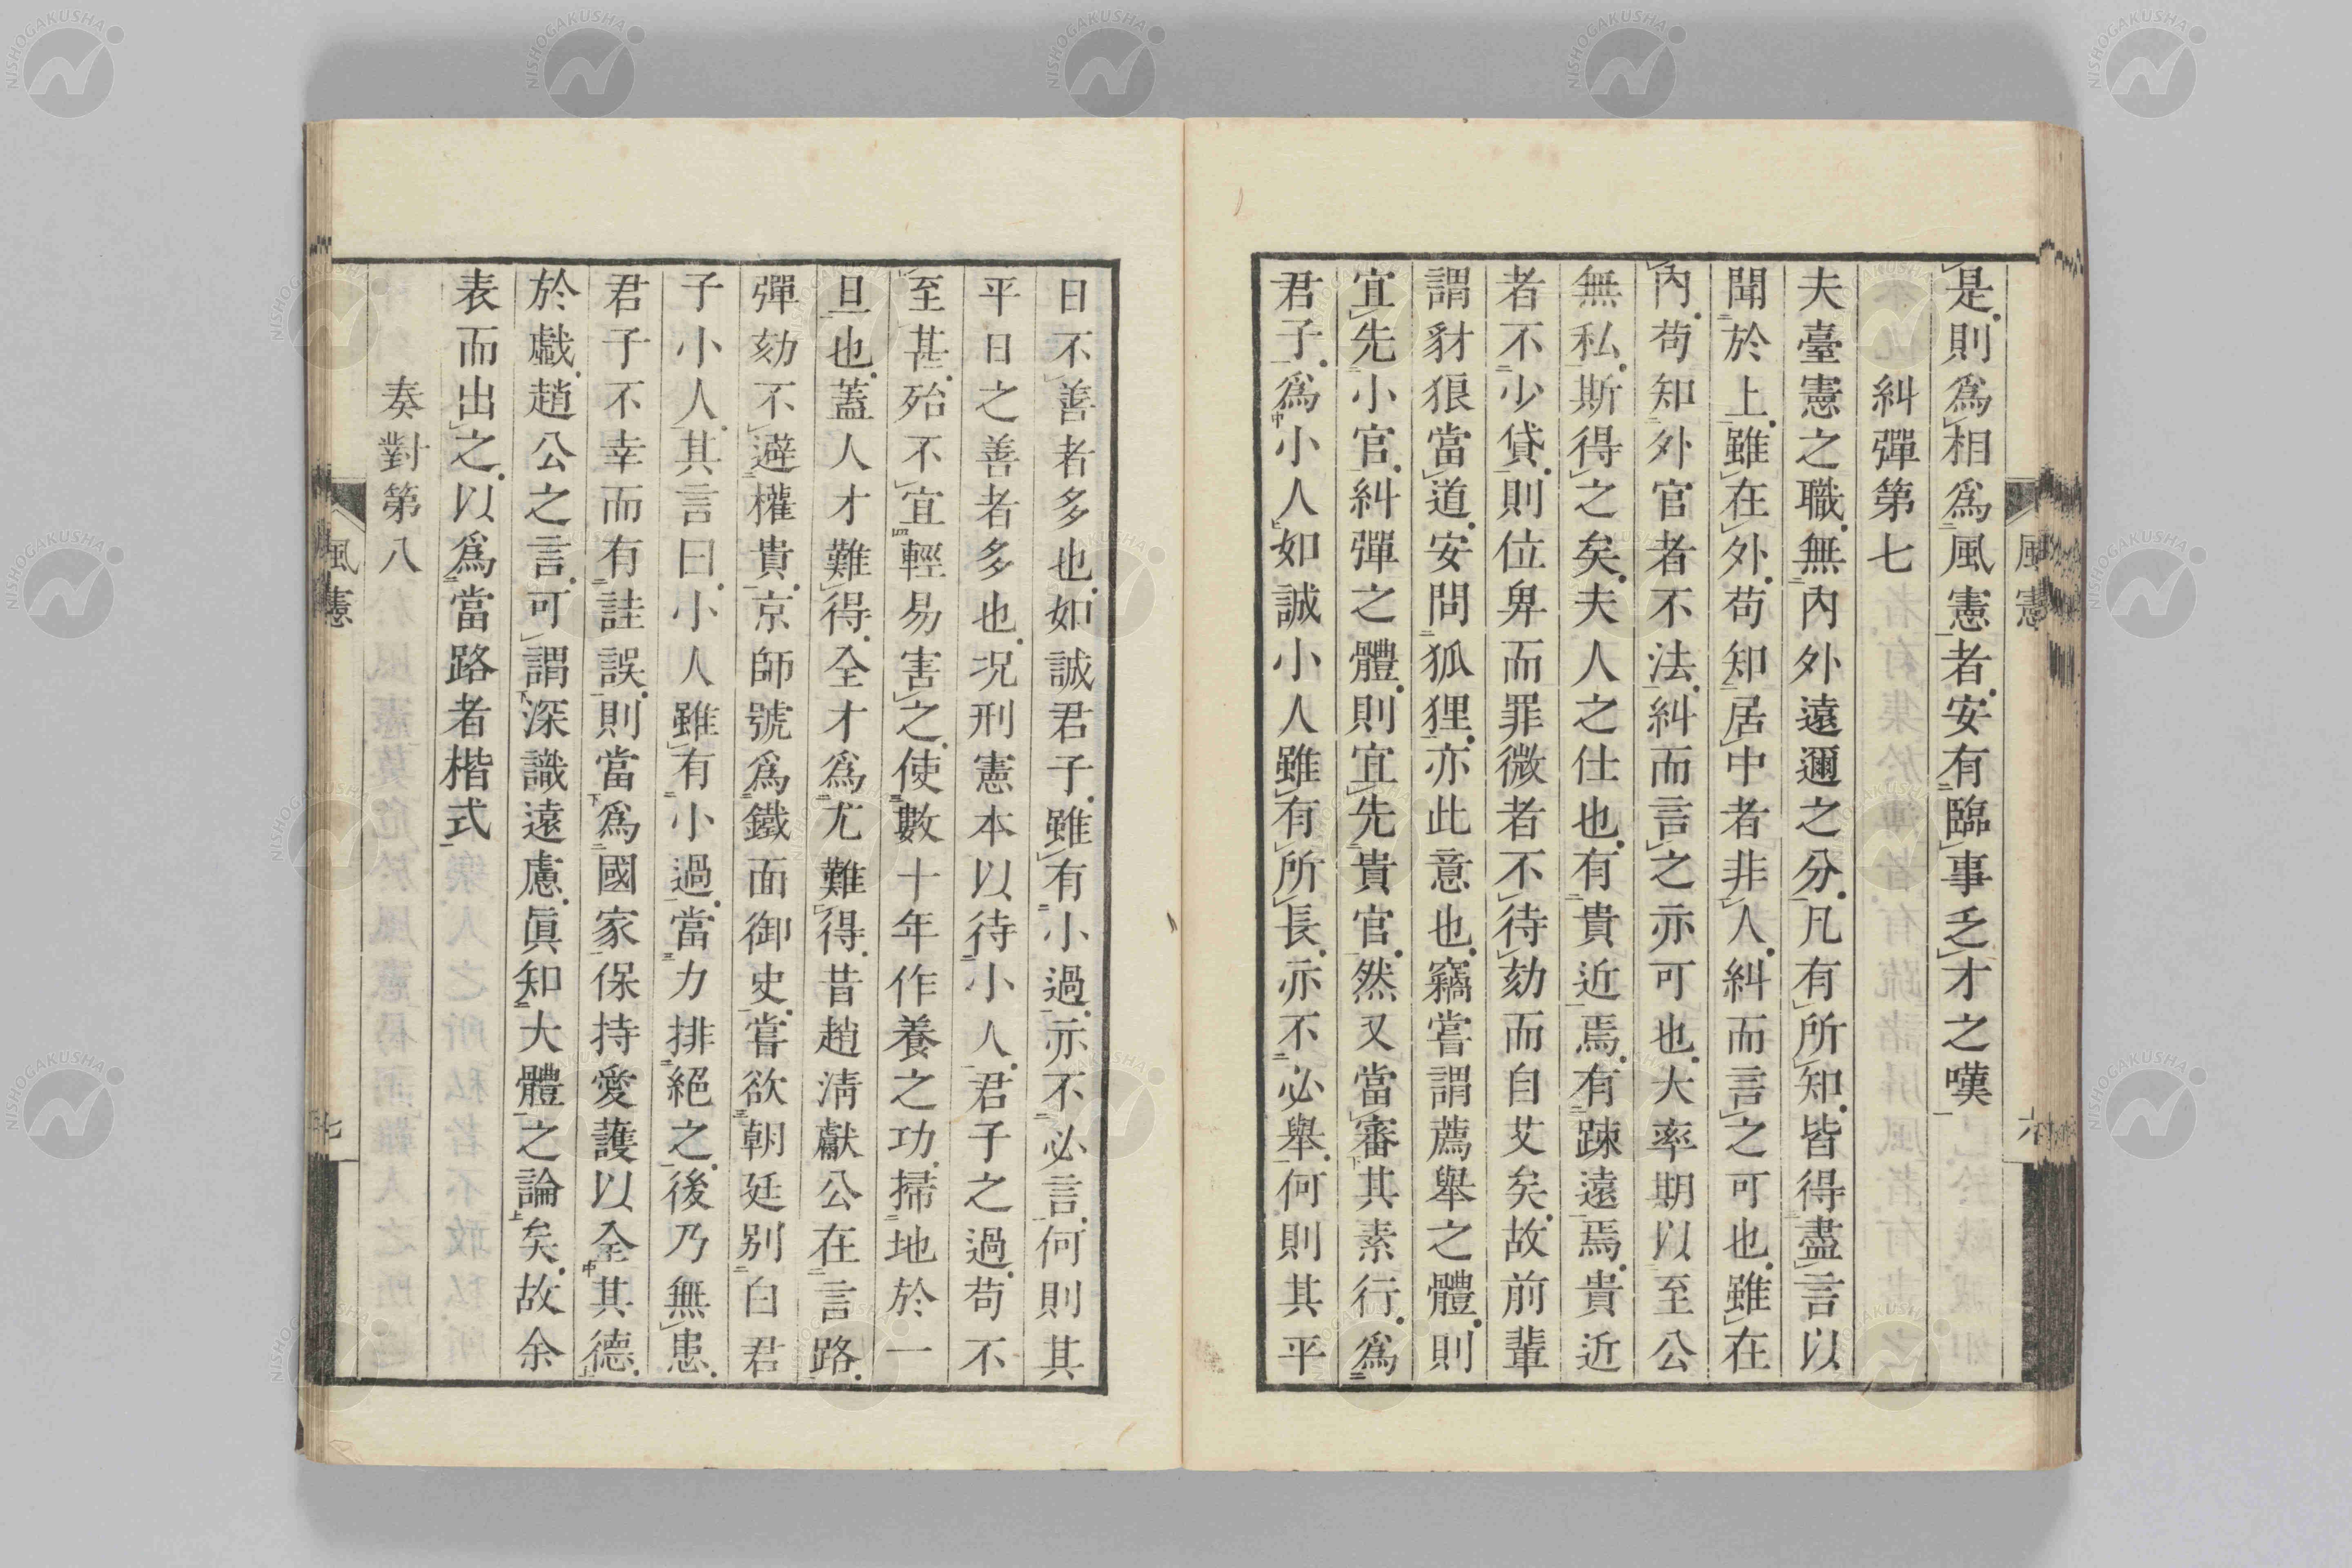 是則爲相爲風憲者安有臨事乏才之嘆
糾彈第七
夫臺憲之職無內外遠邇之分凡有所知皆得盡言以
聞於上雖在外苟知居中者非人糾而言之可也雖在
內苟知外官者不法糾而言之亦可也大率期以至公
無私斯得之矣夫人之仕也有貴近焉有踈遠焉貴近
者不少貸則位卑而罪微者不待劾而自艾矣故前輩
謂豺狼當道安問狐狸亦此意也竊嘗謂薦舉之體則
宜先小官糾彈之體則宜先貴官然又當審其素行爲
君子爲小人如誠小人雖有所長亦不必舉何則其平
日不善者多也如誠君子雖有小過亦不必言何則其
平日之善者多也况刑憲本以待小人君子之過苟不
至甚殆不宜輕易害之使數十年作養之功掃地於一
旦也蓋人才難得全才爲尤難得昔趙淸獻公在言路
彈劾不避權貴京師號爲鐵面御史嘗欲朝廷别白君
子小人其言曰小人雖有小過當力排絕之後乃無患
君子不幸而有詿誤則當爲國家保持愛護以全其德
於戲趙公之言可謂深識遠慮眞知大體之論矣故余
表而出之以爲當路者楷式
奏對第八
風憲
六
風憲
七
NISHOGAKUSHA